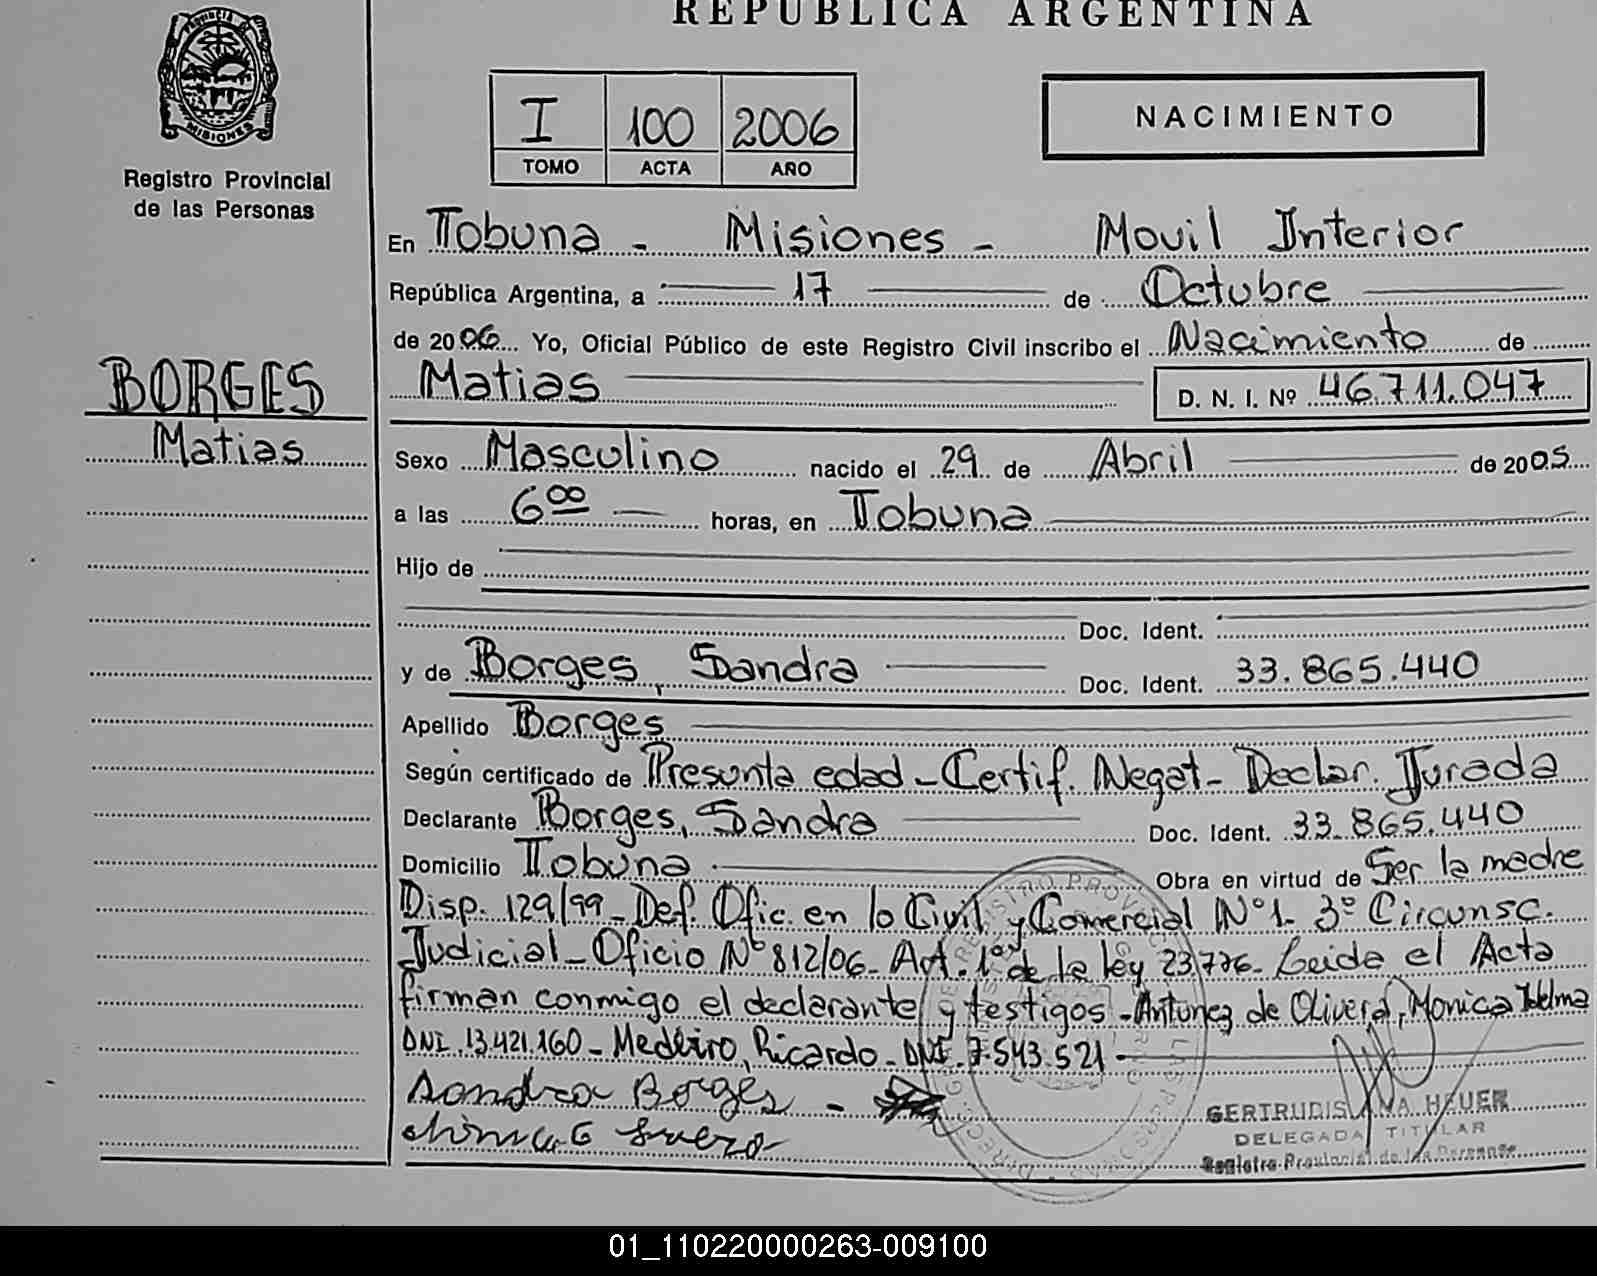 REPUBLICA ARGENTINA
PROVINCIA
MISIONES
Registro Provincial
de las Personas
I 100 2006
TOMO ACTA AÑO
NACIMIENTO
En Tobuna - Misiones - Movil Interior
República Argentina, a 17 de Octubre
de 2006 Yo, Oficial Público de este Registro Civil inscribo el Nacimiento de
Matias D. N. I. Nº 46.711.047
BORGES
Matias
Sexo Masculino nacido el 29 de Abril de 2005
a las 6 00 horas, en Tobuna
Hijo de
Doc. Ident.
y de Borges, Sandra Doc. Ident. 33.865.440
Apellido Borges
Según certificado de Presunta edad - Certif. Negat - Declar. Jurada
Declarante Borges, Sandra Doc. Ident. 33.865.440
Domicilio Tobuna Obra en virtud de Ser la madre
Disp. 129/99 - Def. Ofic. en lo Civil y Comercial Nº 1 - 3º Circunsc.
Judicial - Oficio Nº 812/06 - Art. 1º de la ley 23.776 - Leida el Acta
firman conmigo el declarante y testigos - Antunez de Olivera, Monica Telma
DNI. 13.421.160 - Medeiro, Ricardo - DNI. 7.543.521 -
Sandra Borges -
GERTRUDIS ANA HEUER
DELEGADA TITULAR
Registro Provincial de las Personas
01_110220000263-009100